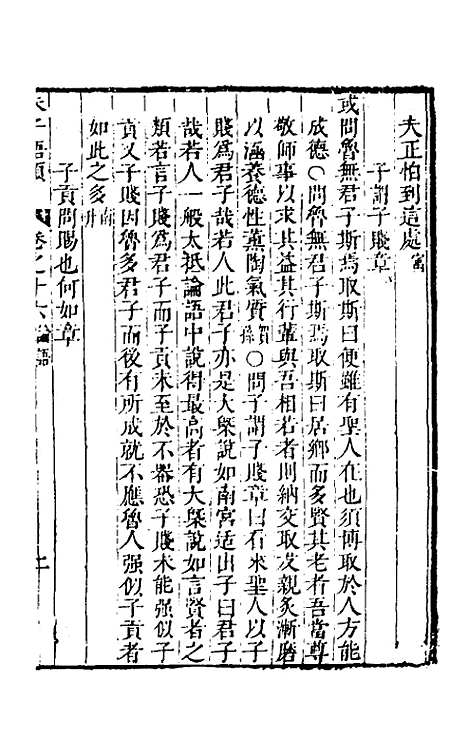 夫正怕到這處㝢
子謂子賤章
或問魯無君子斯焉取斯曰便雖有聖人在也須博取於人方能
成德〇問魯無君子斯焉取斯曰居鄉而多賢其老者吾當尊
敬師事以求其益其行輩與吾相若者則納交取友親炙漸磨
以涵養德性薰陶氣質賀孫〇問子謂子賤章曰石米聖人以子
賤爲君子哉若人此君子亦是大槩說如南宮适出子曰君子
哉若人一般大抵論語中說得最高者有大槩說如言賢者之
類若言子賤爲君子而子貢未至於不器恐子賤未能强似子
貢又子賤因魯多君子而後有所成就不應魯人强似子貢者
如此之多南升
子貢問賜也何如章
朱子語類 卷之十六 論語 二